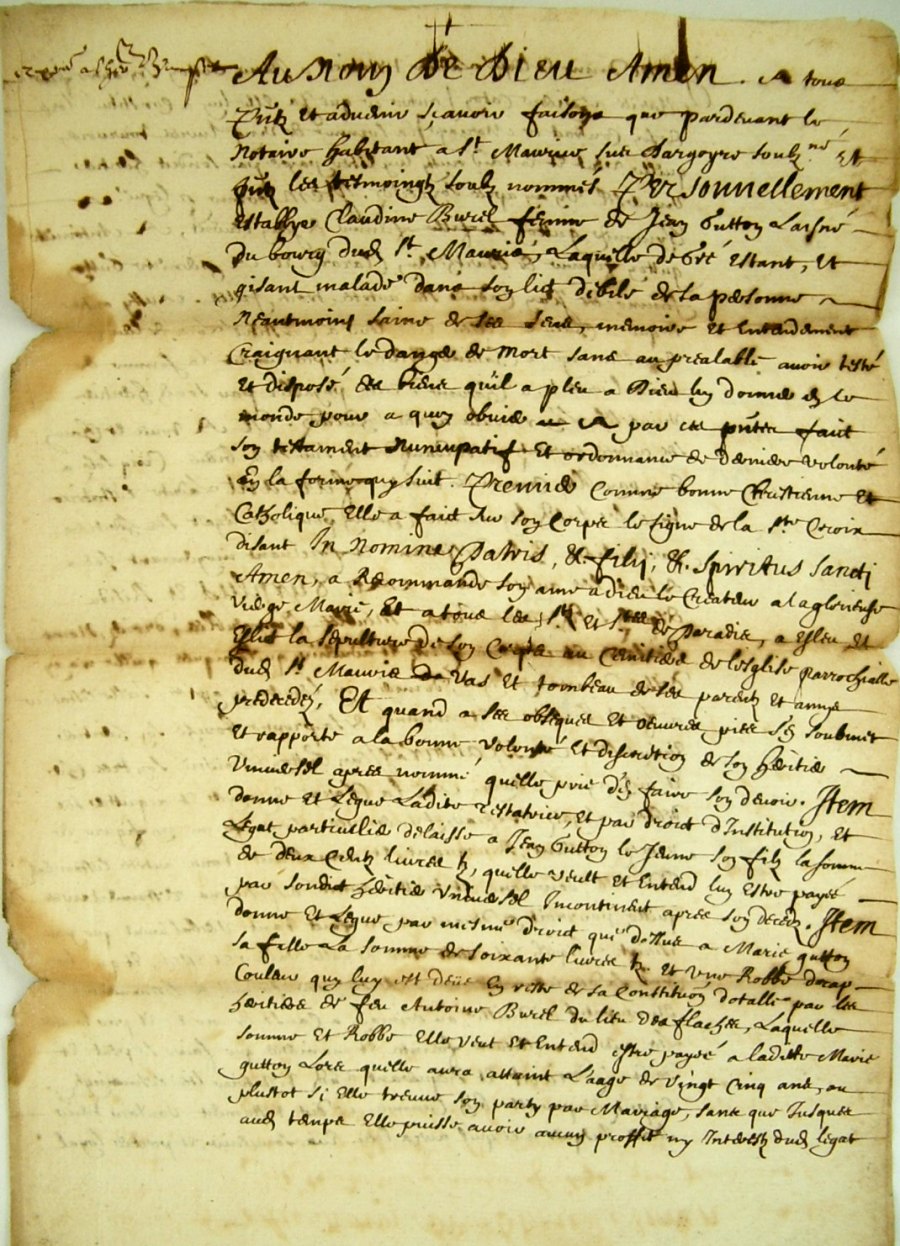 Au Nom De Dieu Amen. A tous
P̃ntz Et advenir sçavoir faisons que pardevant le
Notaire habitant a St Maurice sur dargoyre soubz.né Et
p̃ntz les tesmoingtz soubz nommés Personnellement
establye Claudine Burel femme de Jean Gutton Laisné
du bourg dud St Maurice, Laquelle de Gré estant, Et
gisant malade dans son lict debile de sa personne
Neantmoins saine de ses sens, memoire et Entendement
Craignant le danger de Mort sans au prealable avoir testé
et disposé des biens quil a pleu a Dieu luy donner en ce
monde pour a quoy obvier a par ces p̃ntes faict
son testament Nuncupatif Et ordonnance de derniere volonté
En la forme quy suit. Premier Comme bonne Chrestienne Et
Catholique Elle a faict sur son Corps le signe de la Ste Croix
disant In Nomine Patris, &. filij, &. Spiritus Sancti
Amen, a Recommande son ame a dieu le Createur a la glorieuse
Vierge Marie, Et a tous les Sts Et Stes de Paradis, a Esleu Et
Eslit la sepulture de son Corps au Cimitiere de lesglise parrochialle
dud St Maurice Vas et tombeau de ses parentz et amys
predecedez, Et quand a ses obseques Et oeuvres pies sen soubmet
Et rapporte a la bonne volonté Et discretion de son heritier
Universel apres nommé, quelle prie den faire son devoir. Item
donne et Legue Ladite Testatrice, Et par droict d'Institution, Et
Legat particullier delaisse a Jean Gutton le Jeune son filz la somme
de deux Centz livres tz, quelle veult et Entend luy Estre payée
par sondict heritier Universel Incontinent apres son decedz. Item
donne Et Legue par mesme droict que dessus a Marie gutton
sa fille La somme de soixante livres tz. Et Une Robbe drap
Couleur quy luy est deüe En reste de sa Constitũon dotalle par les
heritiers de feu Antoine Burel du lieu des flaches, Laquelle
somme Et Robbe Elle veut Et Entend estre payée a ladite Marie
gutton Lors quelle aura attaint L'aage de Vingt Cinq ans, ou
plustot si Elle treuve son party par Mariage, sans que Jusques
aud temps Elle puisse avoir aucun proffit ny Interestz dud legat